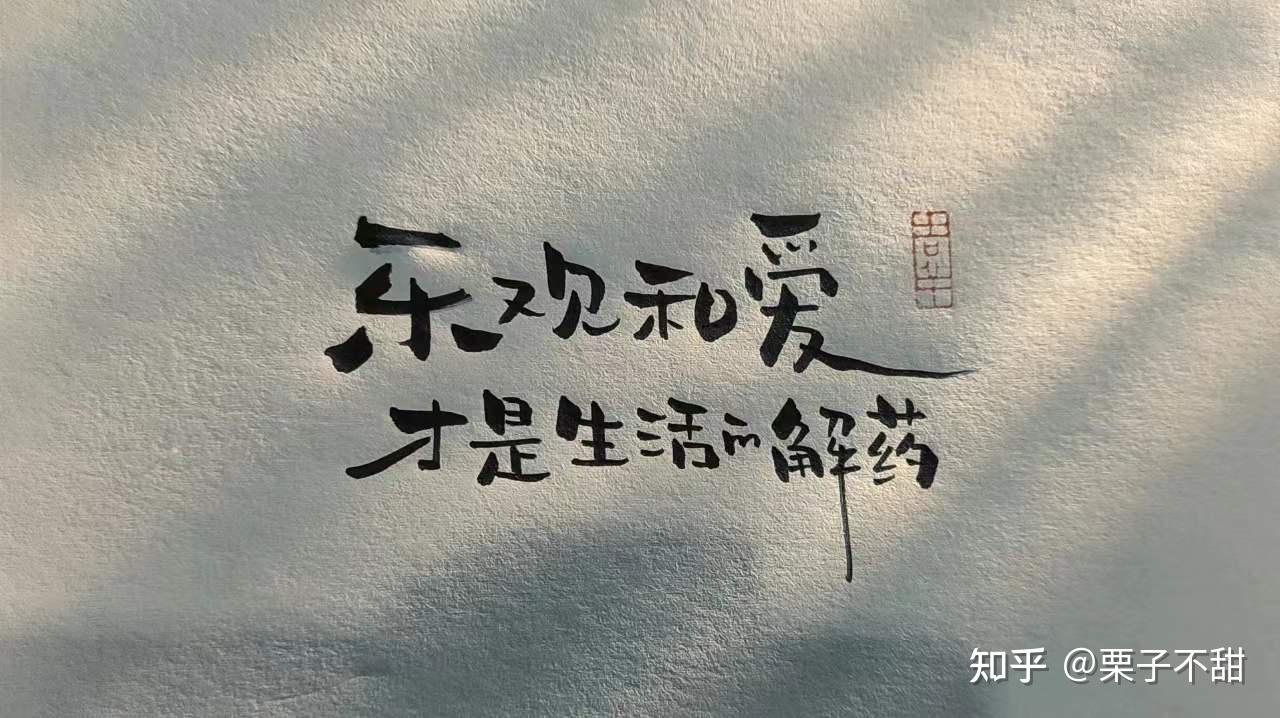 乐观和爱
才是生活的解药
知乎 @栗子不甜